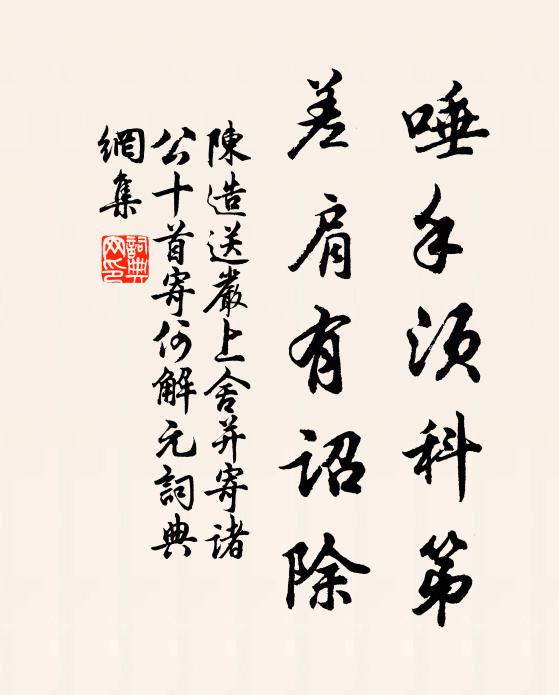 唾手須科第
差肩有詔除
陳造送嚴上舍并寄諸
公十首寄何解元詞典
網集
詞典網印